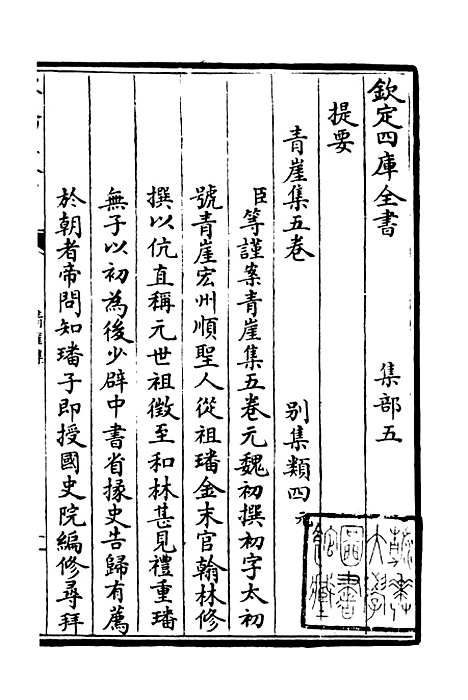 欽定四庫全書 集部五
提要
青崖集五卷 別集類四 元
臣等謹案青崖集五卷元魏初撰初字太初
號青崖宏州順聖人從祖璠金末官翰林修
撰以伉直稱元世祖徵至和林甚見禮重璠
無子以初為後少辟中書省掾史告歸有薦
於朝者帝問知璠子即授國史院編修尋拜
青崖集